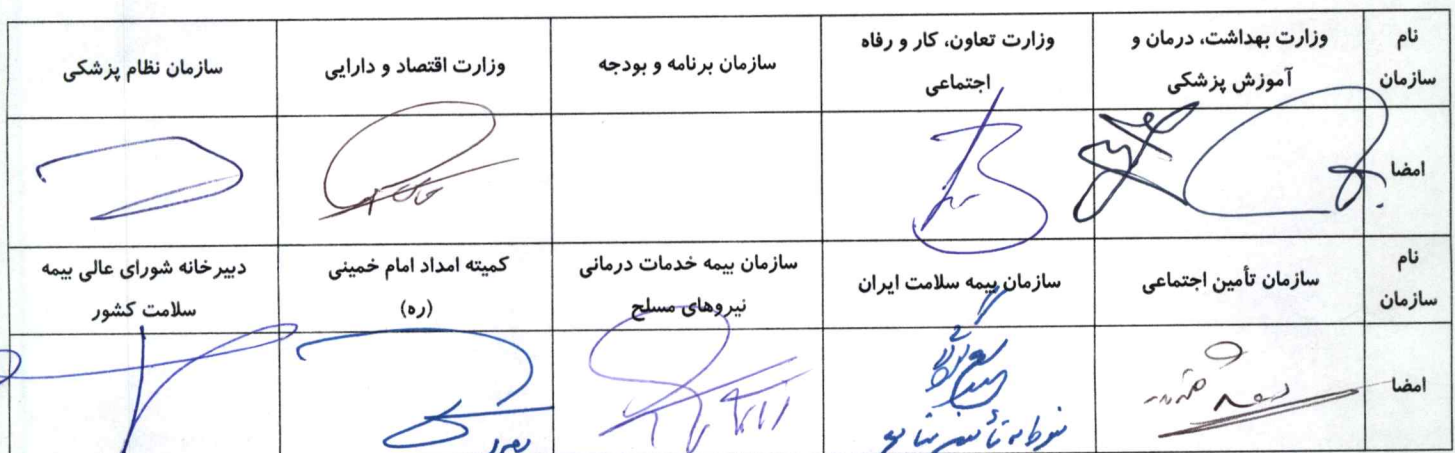 نام سازمان
وزارت بهداشت، درمان و آموزش پزشکی
وزارت تعاون، کار و رفاه اجتماعی
سازمان برنامه و بودجه
وزارت اقتصاد و دارایی
سازمان نظام پزشکی
امضا
نام سازمان
سازمان تأمین اجتماعی
سازمان بیمه سلامت ایران
سازمان بیمه خدمات درمانی نیروهای مسلح
کمیته امداد امام خمینی (ره)
دبیرخانه شورای عالی بیمه سلامت کشور
امضا